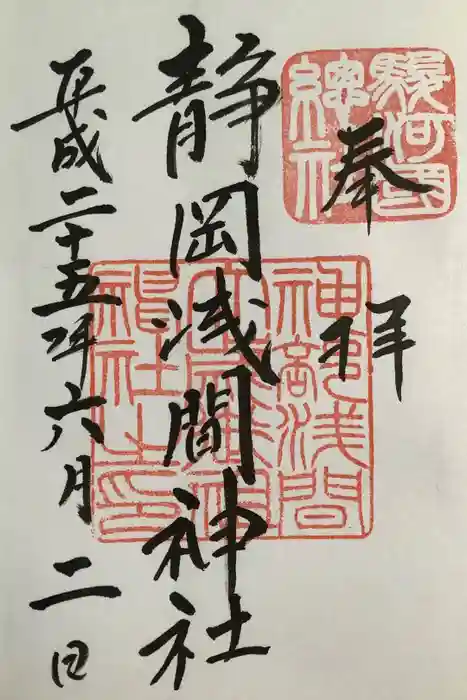 奉拝
駿河國
總社
静岡浅間神社
神部浅間
神社之印
平成二十五年六月二日